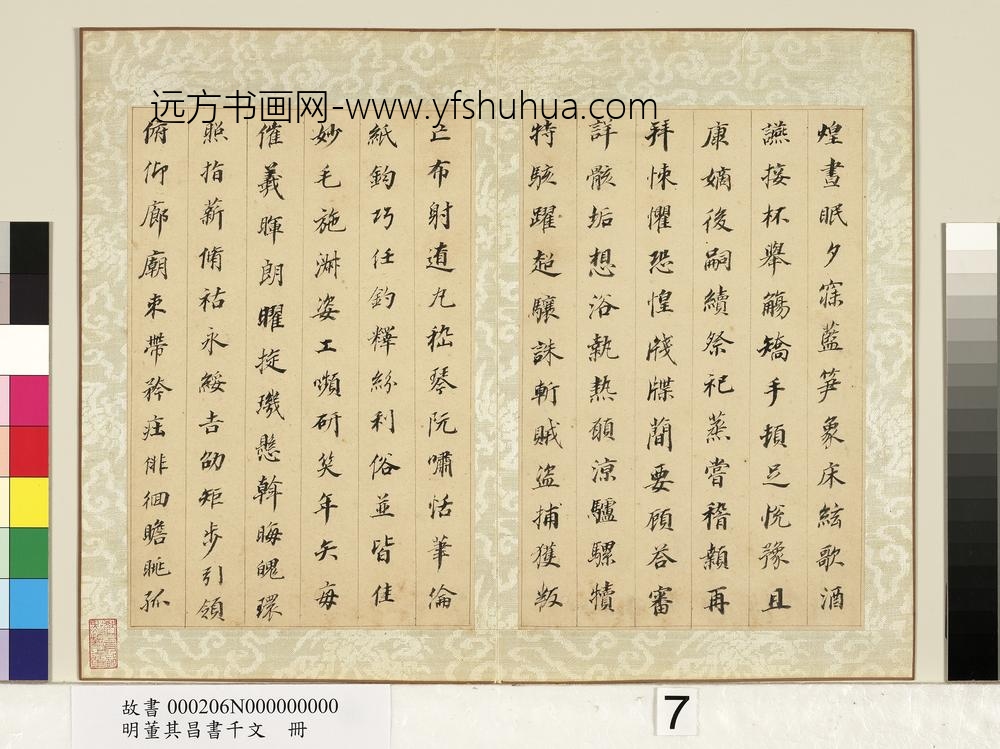 远方书画网-www.yfshuhua.com
煌晝眠夕寐藍笋象床絃歌酒
讌接杯舉觴矯手頓足悅豫且
康嫡後嗣續祭祀蒸嘗稽顙再
拜悚懼恐惶牋牒蕳要顧荅審
詳骸垢想浴執熱願涼驢騾犢
特駭躍超驤誅斬賊盜捕獲叛
亡布射遼丸嵇琴阮嘯恬筆倫
紙鈞巧任釣釋紛利俗並皆佳
妙毛施淑姿工嚬研笑年矢每
催羲暉朗曜旋璣懸斡晦魄環
照指薪脩祜永綏吉劭矩步引領
俯仰廊廟束帶矜莊徘徊瞻眺孤
故書 000206N000000000
明董其昌書千文 冊
7